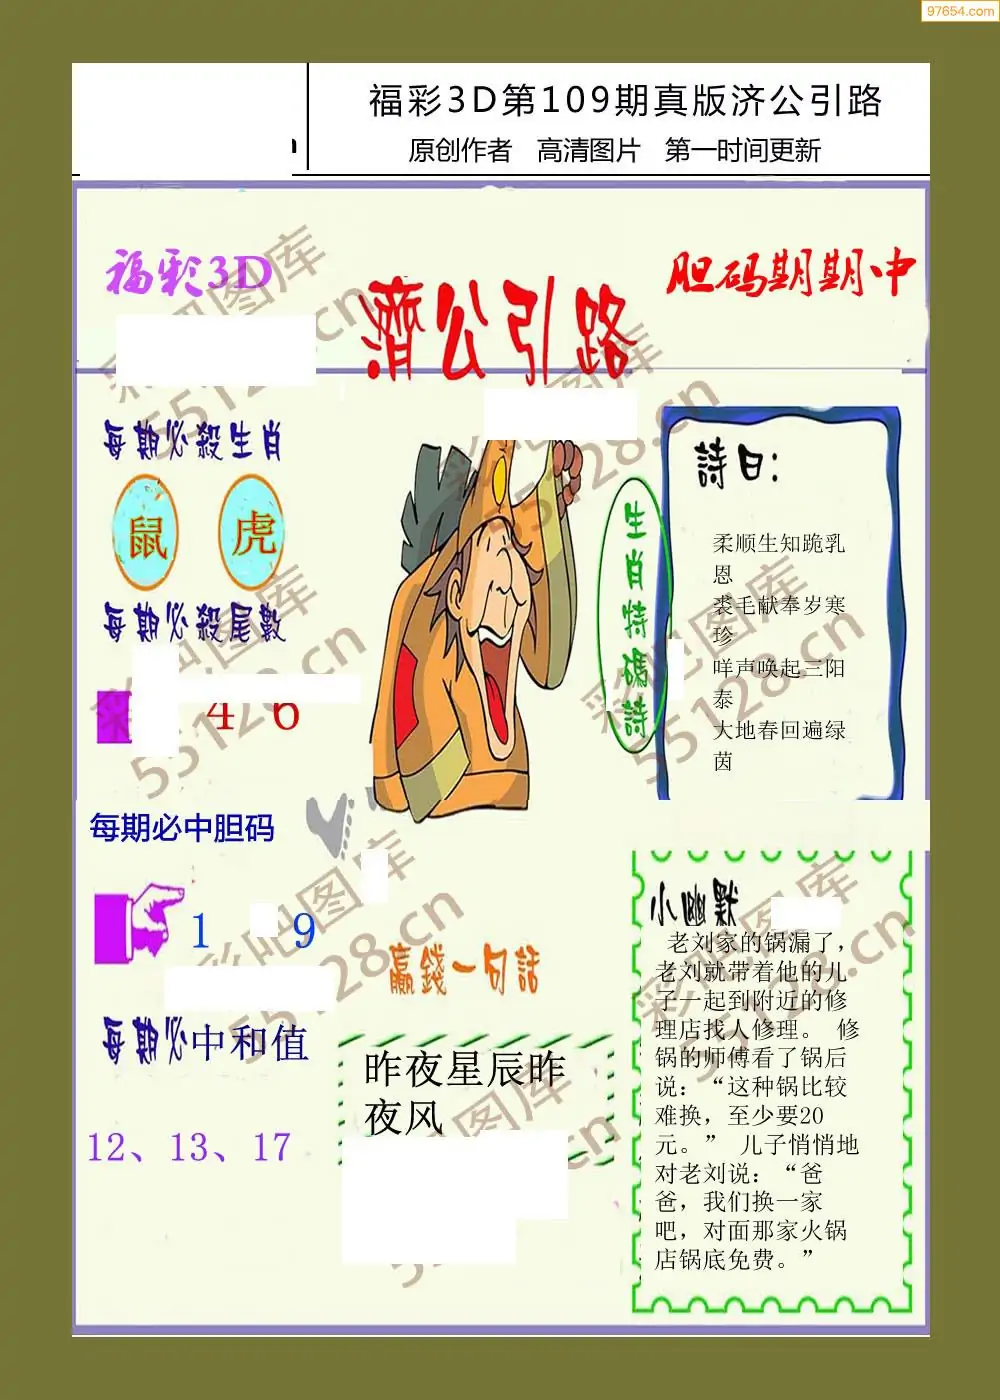 97654.com
福彩3D第109期真版济公引路
原创作者 高清图片 第一时间更新
福彩3D
濟公引路
胆码期期中
每期必殺生肖
鼠 虎
每期必殺尾數
4 6
每期必中胆码
1 9
每期必中和值
12、13、17
生肖特碼詩
詩曰：
柔顺生知跪乳
恩
裘毛献奉岁寒
珍
咩声唤起三阳
泰
大地春回遍绿
茵
贏錢一句話
昨夜星辰昨
夜风
小幽默
老刘家的锅漏了，
老刘就带着他的儿
子一起到附近的修
理店找人修理。 修
锅的师傅看了锅后
说：“这种锅比较
难换，至少要20
元。” 儿子悄悄地
对老刘说：“爸
爸，我们换一家
吧，对面那家火锅
店锅底免费。”
彩吧图库
55128.cn
彩吧图库
55128.cn
彩吧图库
55128.cn
彩吧图库
55128.cn
彩吧图库
55128.cn
彩吧图库
55128.cn